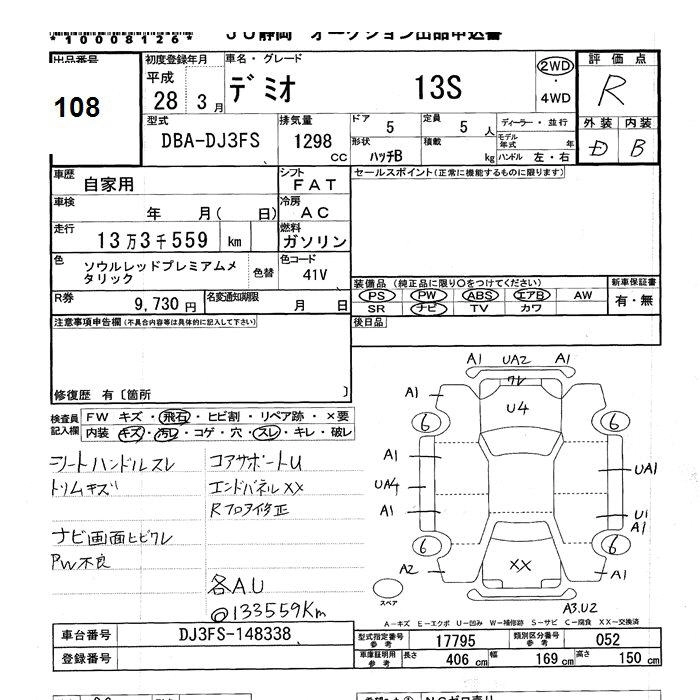 *10008126*
JU静岡 オークション出品申込書
出品番号
108
初度登録年月
平成
28 3月
車名・グレード
デミオ 13S
2WD
4WD
評価点
R
外装 内装
D B
型式
DBA-DJ3FS
排気量
1298
CC
ドア
5
定員
5 人
形状
ハッチB
積載
kg
ディーラー・並行
モデル年式 年
ハンドル 左・右
車歴
自家用
シフト
FAT
セールスポイント(正常に機能するものに限ります)
車検
年 月( 日)
冷房
AC
走行
13万3千559 km
燃料
ガソリン
色
ソウルレッドプレミアムメ
タリック
色替
色コード
41V
装備品 (純正品に限り○をつけてください)
新車保証書
PS PW ABS エアB AW
SR ナビ TV カワ
有・無
R券
9,730 円
名変通知期限
月 日
後日品
注意事項申告欄(不具合内容等は具体的に記入して下さい)
修復歴 有〔箇所 〕
検査員
記入欄
FW キズ・飛石・ヒビ割・リペア跡・×要
内装 キズ・汚レ・コゲ・穴・スレ・キレ・破レ
シートハンドルスレ
トリムキズ
ナビ画面ヒビワレ
PW不良
コアサポートU
エンドパネルXX
Rフロア修正
各A.U
@133559Km
A1 UA2 A1
ワレ
A1 U4
6 6
A1
UA1
UA4
A1
U1
A1
6 6
A2 XX A1
スペア
A3.U2
A-キズ E-エクボ U-凹み W-補修跡 S-サビ C-腐食 XX-交換済
車台番号
DJ3FS-148338
登録番号
型式指定番号
参考
17795
類別区分番号
参考
052
車庫証明用
参考
長さ
406 cm
幅
169 cm
高さ
150 cm